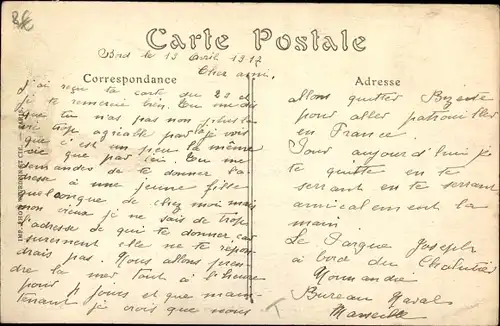 Carte Postale
Bord le 13 Avril 1917
Cher ami,
Correspondance
J'ai reçu ta carte du 22 et
je te remercie bien. Tu me dis
que tu n'as pas non plus la
vie trop agréable par la je vois
que c'est un peu la même
vie que par ici. Tu me
demandes de te donner la
dresse à une jeune fille
quelconque de chez moi mais
mon vieux je ne sais de trop
l'adresse de qui te donner car
surement elle ne te répon
drais pas. Nous allons pren
dre la mer tout à l'heure
pour jours et que main
tenant je crois que nous
Adresse
allons quitter Bizerte
pour aller patrouiller
en France.
Pour aujourd'hui je
te quitte en te
serrant en te serrant
amicalement la
main.
Le Pargue Joseph
à bord du Chalutier
Normandie
Bureau Naval
Marseille